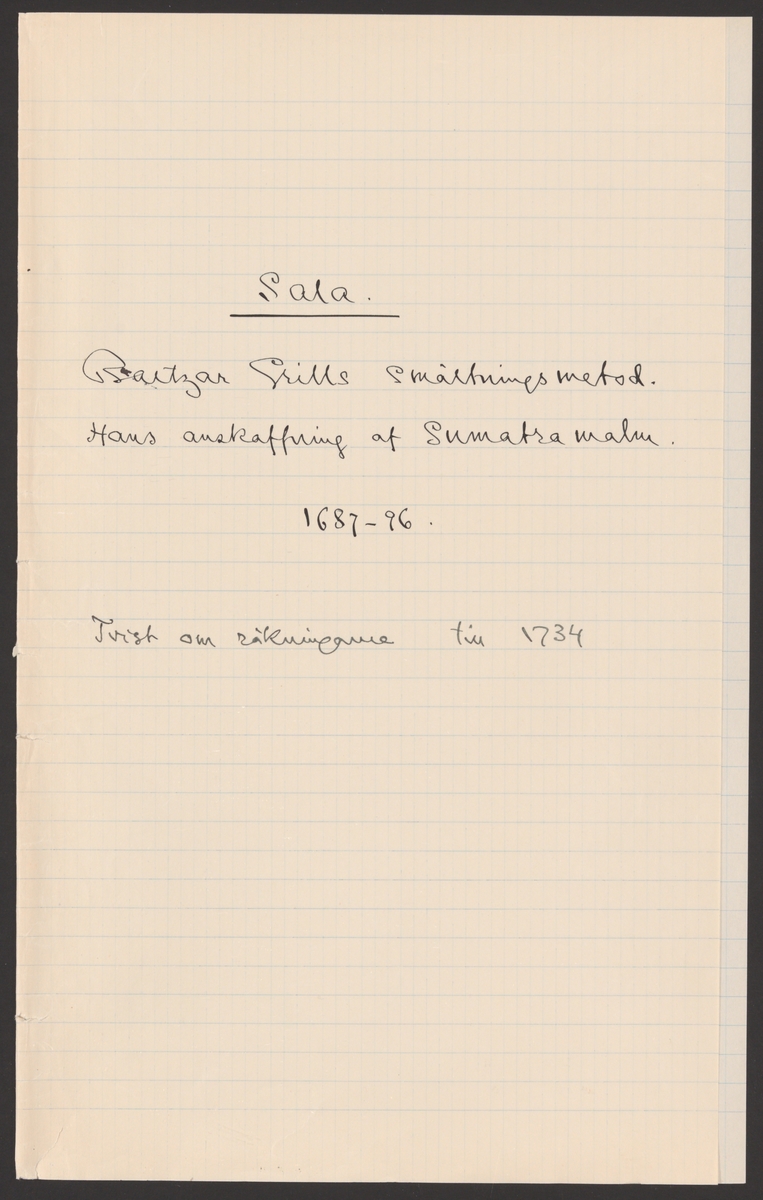 Sala.
Baltzar Grills Smältningsmetod.
Hans anskaffning af Sumatra malm.
1687-96.
Tvist om räkningarne till 1734